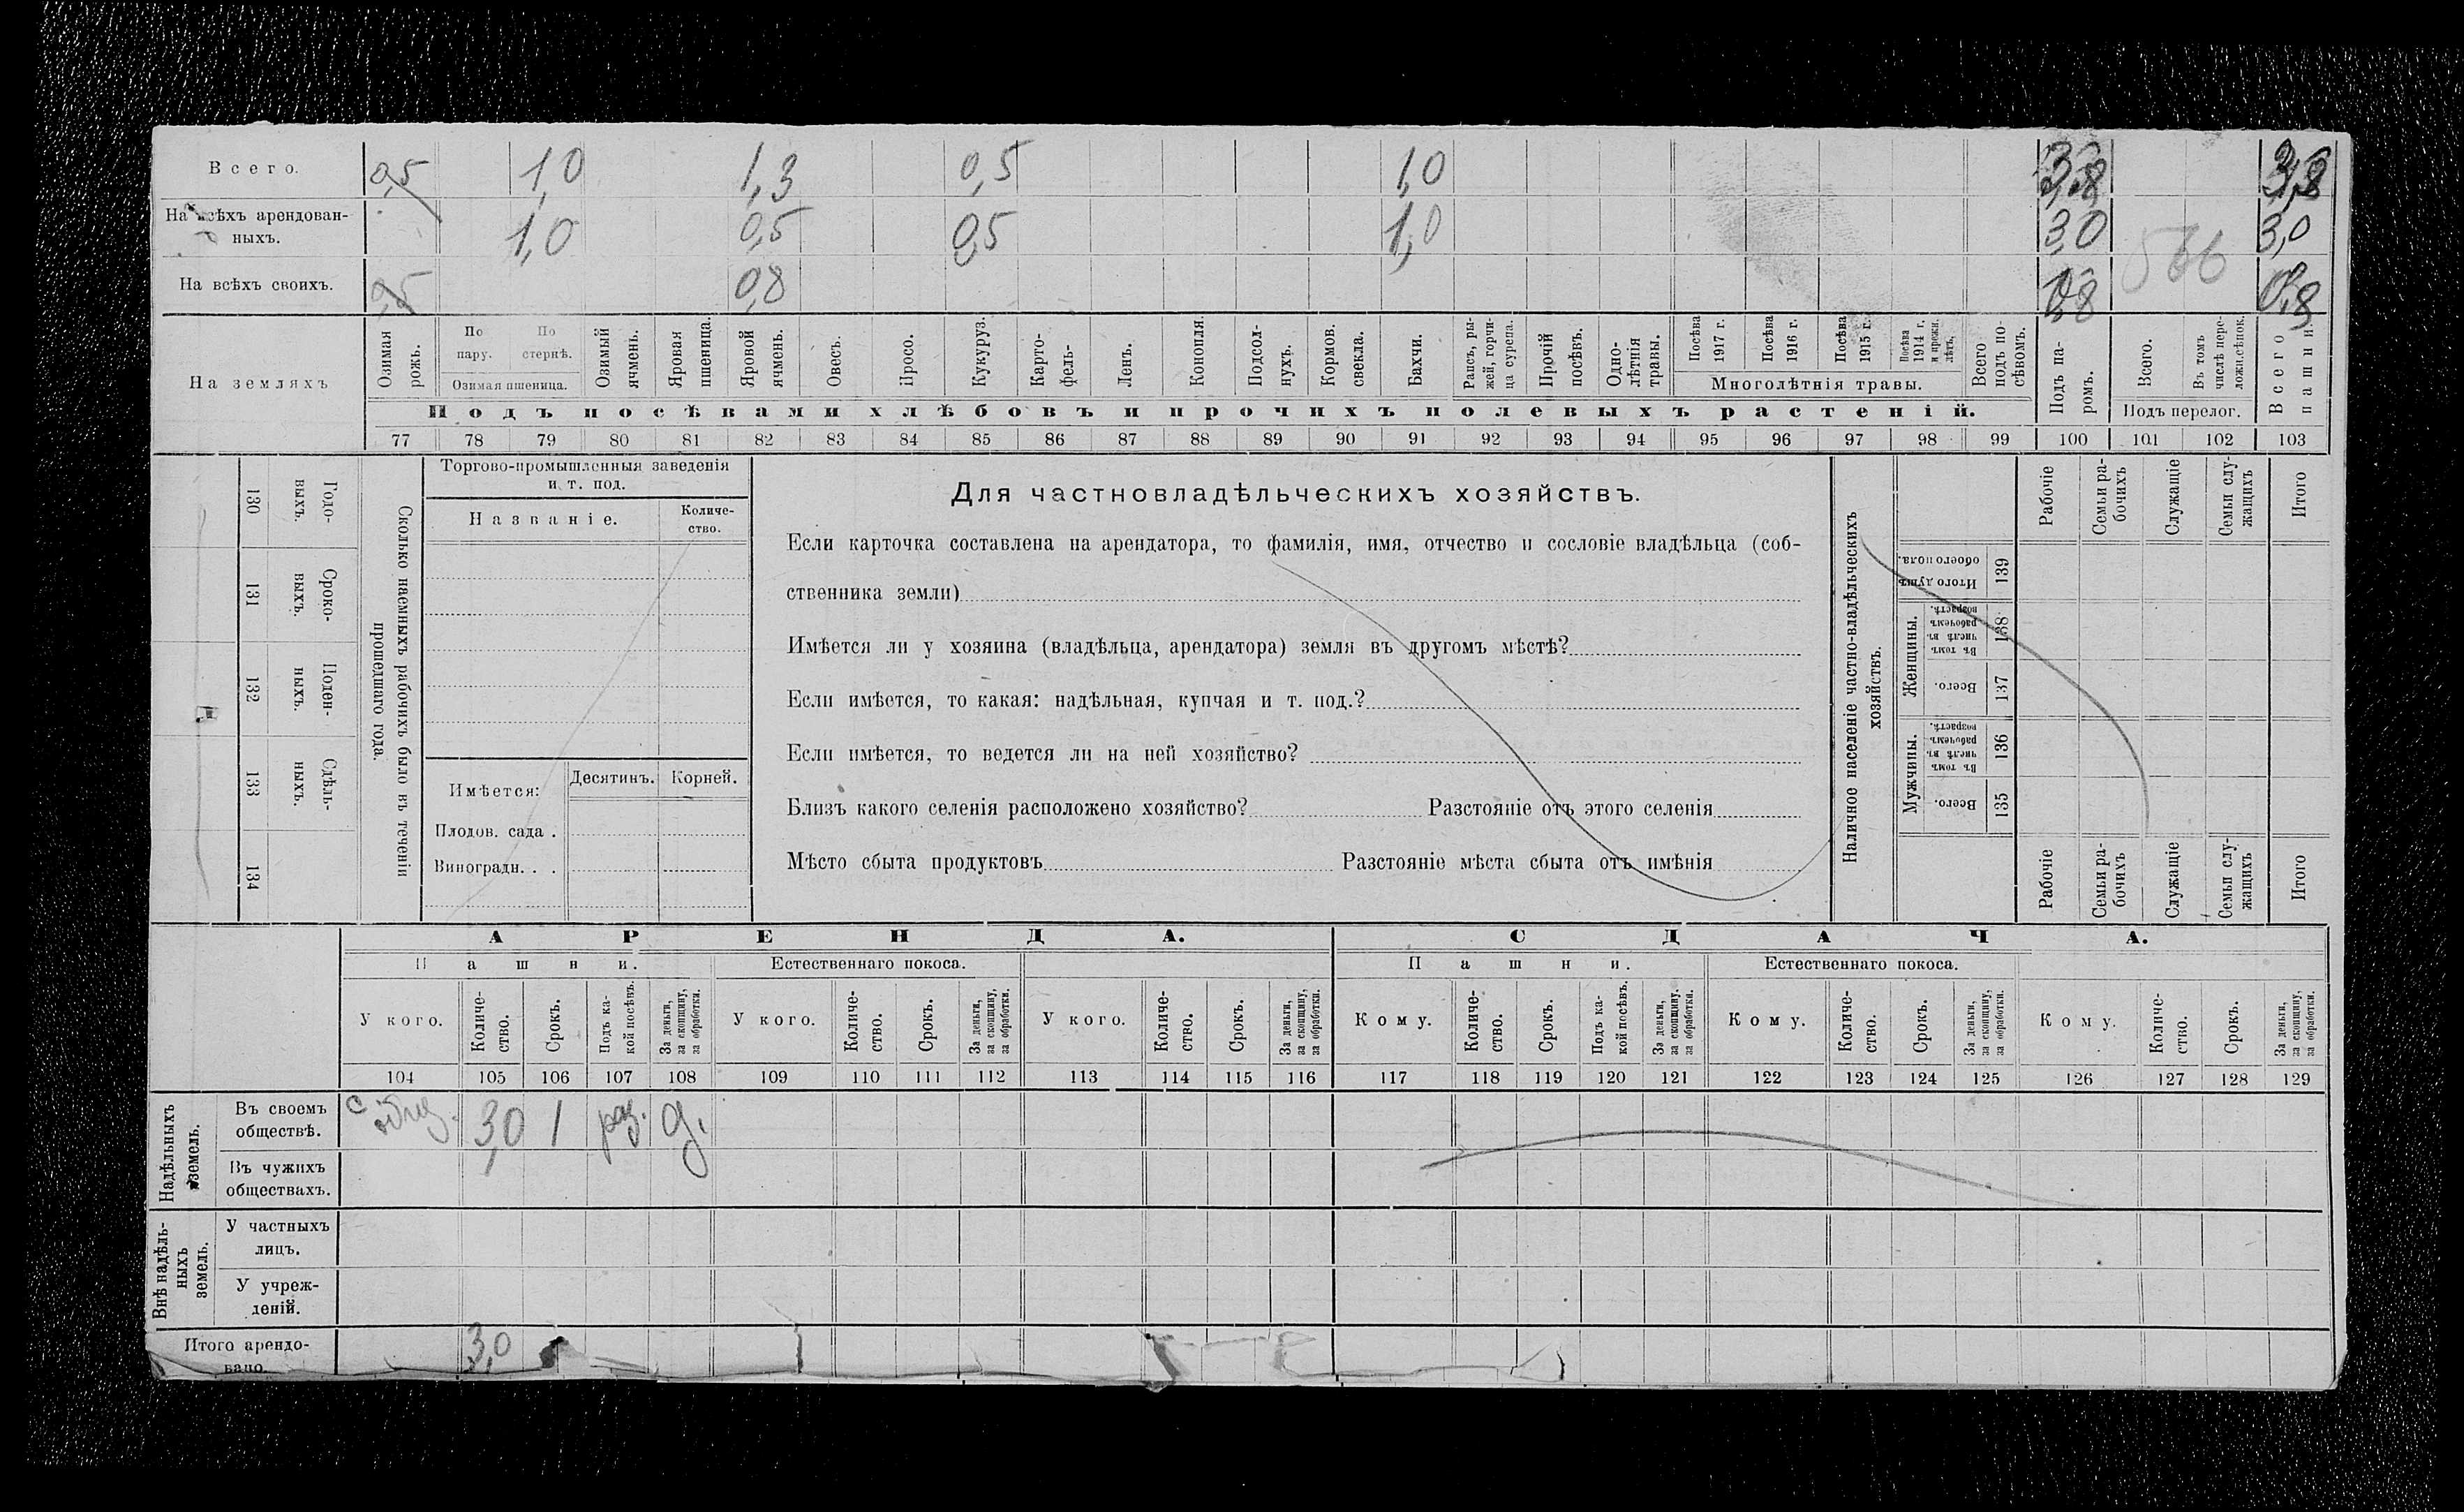 Всего. 0,5 1,0 1,3 0,5 1,0 3,8 3,8
На всѣхъ арендован-
ныхъ. 1,0 0,5 0,5 1,0 3,0 566 3,0
На всѣхъ своихъ. 0,5 0,8 0,8 0,8
На земляхъ
Озимая рожь.
По пару.
По стернѣ.
Озимая пшеница.
Озимый ячмень.
Яровая пшеница.
Яровой ячмень.
Овесъ.
Просо.
Кукуруз.
Карто-
фель-
Ленъ.
Конопля.
Подсол-
нухъ.
Кормов.
свекла.
Бахчи.
Рапсъ, ры-
жей, горчи-
ца сурепа.
Прочій
посѣвъ.
Одно-
лѣтнія
травы.
Посѣва
1917 г.
Посѣва
1916 г.
Посѣва
1915 г.
Посѣва
1914 г.
и прежн.
лѣтъ.
Многолѣтнія травы.
Всего
подъ по-
сѣвомъ.
Подъ па-
ромъ.
Всего.
Въ томъ
числѣ пере-
лож.сѣнок.
Подъ перелог.
Всего
пашни.
Подъ посѣвами хлѣбовъ и прочихъ полевыхъ растеній.
77 78 79 80 81 82 83 84 85 86 87 88 89 90 91 92 93 94 95 96 97 98 99 100 101 102 103
130 Годо-
выхъ.
131 Сроко-
выхъ.
132 Поден-
ныхъ.
133 Сдѣль-
ныхъ.
134
Сколько наемныхъ рабочихъ было въ теченіи
прошедшаго года.
Торгово-промышленныя заведенія
и т. под.
Названіе.
Количе-
ство.
Имѣется:
Десятинъ. Корней.
Плодов. сада .
Виноградн. . .
Для частновладѣльческихъ хозяйствъ.
Если карточка составлена на арендатора, то фамилія, имя, отчество и сословіе владѣльца (соб-
ственника земли)
Имѣется ли у хозяина (владѣльца, арендатора) земля въ другомъ мѣстѣ?
Если имѣется, то какая: надѣльная, купчая и т. под.?
Если имѣется, то ведется ли на ней хозяйство?
Близъ какого селенія расположено хозяйство? Разстояніе отъ этого селенія
Мѣсто сбыта продуктовъ Разстояніе мѣста сбыта отъ имѣнія
Наличное населеніе частно-владѣльческихъ
хозяйствъ.
Рабочіе
Семьи ра-
бочихъ
Служащіе
Семьи слу-
жащихъ
Итого
Итого душъ
обоего пола.
139
Женщины.
Въ томъ
числѣ въ
рабочемъ
возрастѣ.
138
Всего.
137
Мужчины.
Въ томъ
числѣ въ
рабочемъ
возрастѣ.
136
Всего.
135
Рабочіе
Семьи ра-
бочихъ
Служащіе
Семьи слу-
жащихъ
Итого
АРЕНДА. СДАЧА.
Пашни. Естественнаго покоса. Пашни. Естественнаго покоса.
У кого.
Количе-
ство.
Срокъ.
Подъ ка-
кой посѣвъ.
За деньги,
за скопщину,
за обработки.
У кого.
Количе-
ство.
Срокъ.
За деньги,
за скопщину,
за обработки.
У кого.
Количе-
ство.
Срокъ.
За деньги,
за скопщину,
за обработки.
Кому.
Количе-
ство.
Срокъ.
Подъ ка-
кой посѣвъ.
За деньги,
за скопщину,
за обработки.
Кому.
Количе-
ство.
Срокъ.
За деньги,
за скопщину,
за обработки.
Кому.
Количе-
ство.
Срокъ.
За деньги,
за скопщину,
за обработки.
104 105 106 107 108 109 110 111 112 113 114 115 116 117 118 119 120 121 122 123 124 125 126 127 128 129
Надѣльныхъ
земель.
Въ своемъ
обществѣ. 3,0 1 раз. д.
Въ чужихъ
обществахъ.
Внѣ надѣль-
ныхъ
земель.
У частныхъ
лицъ.
У учреж-
деній.
Итого арендо-
вано. 3,0